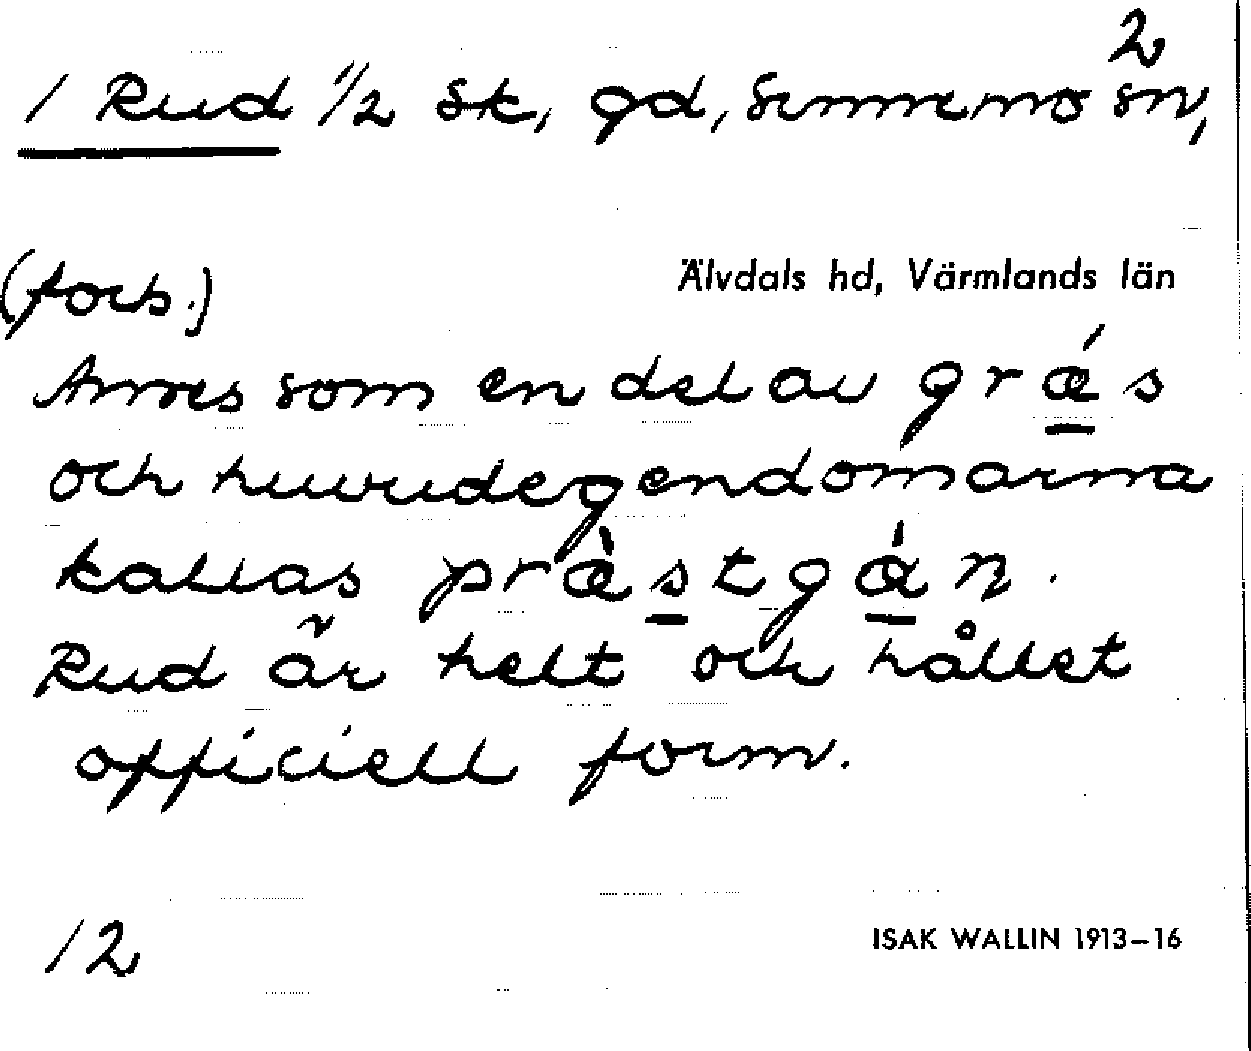 2
1 Rud 1/2 sk, gd, Sunnemo sn,
(forts.)
Älvdals hd, Värmlands län
Anses som en del av græ´s
och huvudegendomarna
kallas præ̀stgæ´n.
Rud är helt och hållet
officiell form.
12
ISAK WALLIN 1913-16